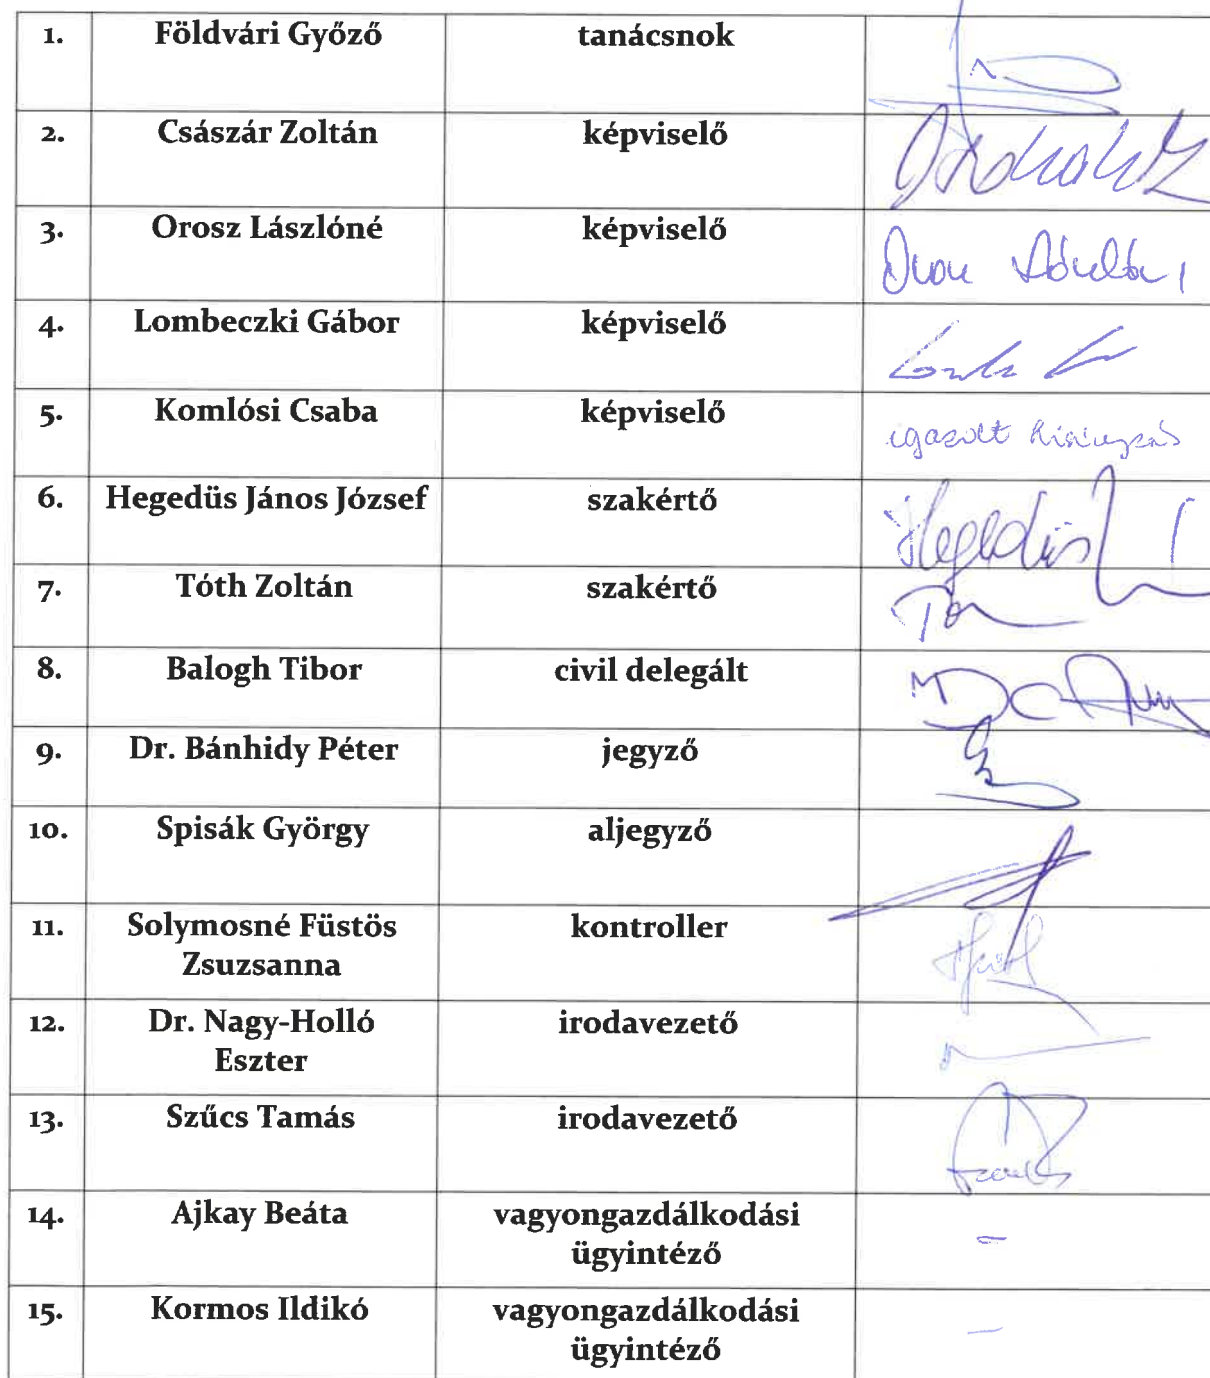 1. Földvári Győző tanácsnok
2. Császár Zoltán képviselő
3. Orosz Lászlóné képviselő
4. Lombeczki Gábor képviselő
5. Komlósi Csaba képviselő igazolt hiányzás
6. Hegedüs János József szakértő Hegedüs
7. Tóth Zoltán szakértő
8. Balogh Tibor civil delegált
9. Dr. Bánhidy Péter jegyző
10. Spisák György aljegyző
11. Solymosné Füstös kontroller
Zsuzsanna
12. Dr. Nagy-Holló irodavezető
Eszter
13. Szűcs Tamás irodavezető
14. Ajkay Beáta vagyongazdálkodási -
ügyintéző
15. Kormos Ildikó vagyongazdálkodási -
ügyintéző